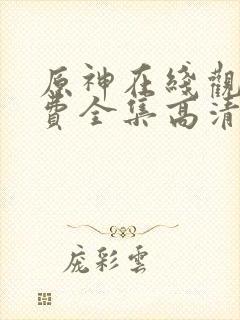 原神在綫觀
費全集高清
庞彩雲